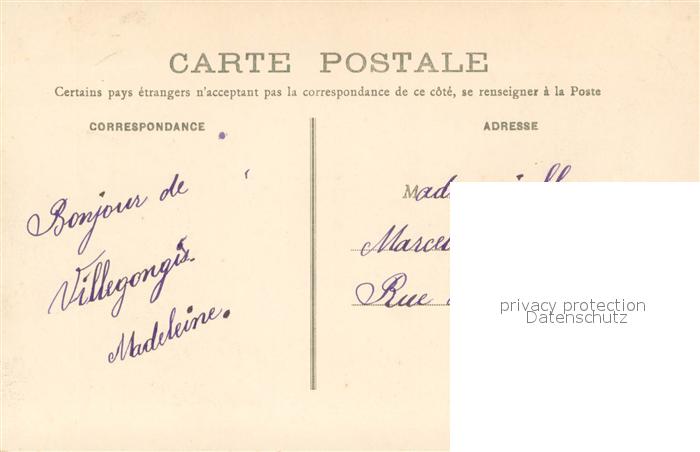 CARTE POSTALE
Certains pays étrangers n'acceptant pas la correspondance de ce côté, se renseigner à la Poste
CORRESPONDANCE
ADRESSE
Bonjour de
Villegongis.
Madeleine.
Rue
privacy protection
Datenschutz